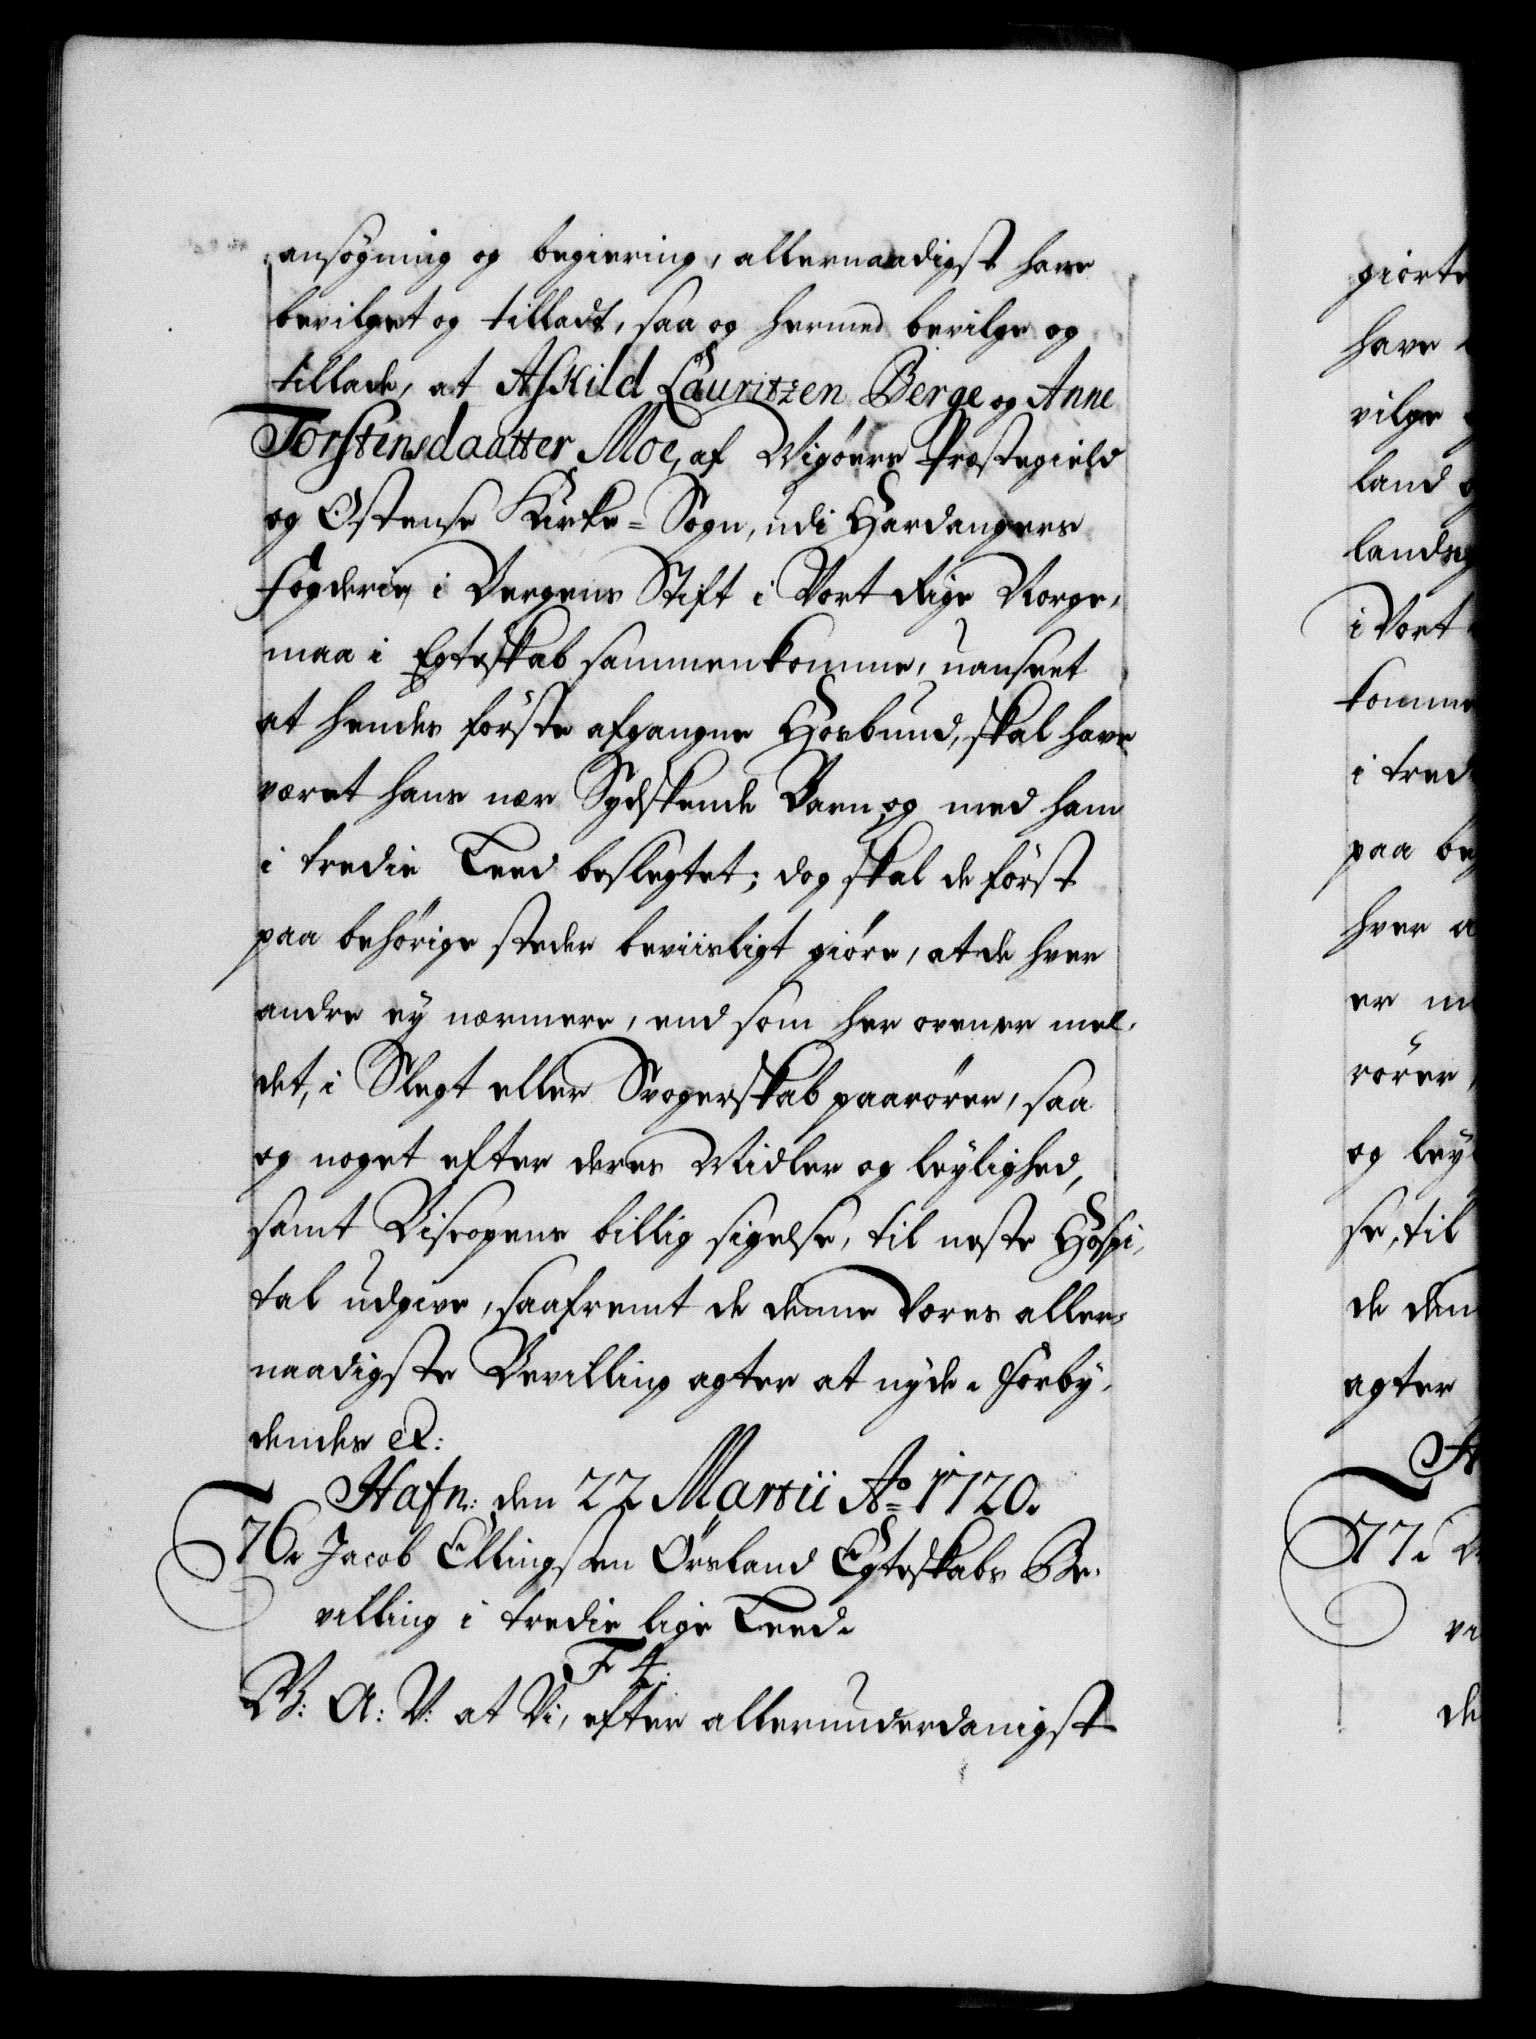 ansøgning og begiering, allernaadigst have
bevilget og tilladt, saa og hermed bevilge og
tillade, at Askild Lauritzen Berge og Anne
Torstensdaatter Moe, af Wigøers Præstegield
og Ostense Kirke=Sogn, udi Hardangers
Fogderie i Bergens Stift i Vort Rige Norge,
maa i Egteskab sammenkomme, uanseet
at hendes første afgangne Hosbund, skal have
været hans nær Sydskende Barn og med ham
i tredie Leed beslegtet; dog skal de først
paa behørige steder beviisligt giøre, at de hver
andre ey nærmere, end som her oven er mel-
det, i Slegt eller Svogerskab paarører, saa
og noget efter deres Midler og leylighed,
samt Biscopens billig sigelse, til neste Hospi-
tal udgive, saafremt de denne Vores aller-
naadigste Bevilling agter at nyde. Forby-
dendes etc:
Hafn: den 22 Martii Ao 1720.
76. Jacob Ellingsen Ørsland Egteskabs Be-
villing i tredie lige Leed.
F 4.
W: A: V: at Vi, efter allerunderdanigst
giorte
have
vilge
land
lands
i Vort
komme
i tred
paa be
hver a
er
rører
og ley
se, til
de den
agter
77.
vi
de